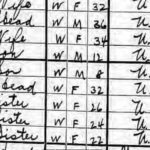 Wife W F 32 N.
Head W M 36 N.
Wife W F 34 N.
W M 12 N
W M 8 N.
Head W F 32 N.
Sister W F 26 N.
Sister W F 24 N.
Sister W F 22 N.